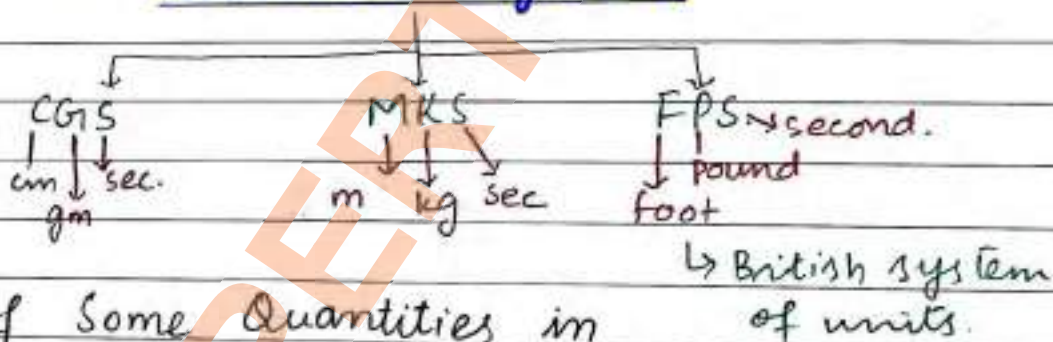 CGS MKS FPS → second.
cm gm sec. m kg sec foot pound
↳ British system
of units.
f Some Quantities in